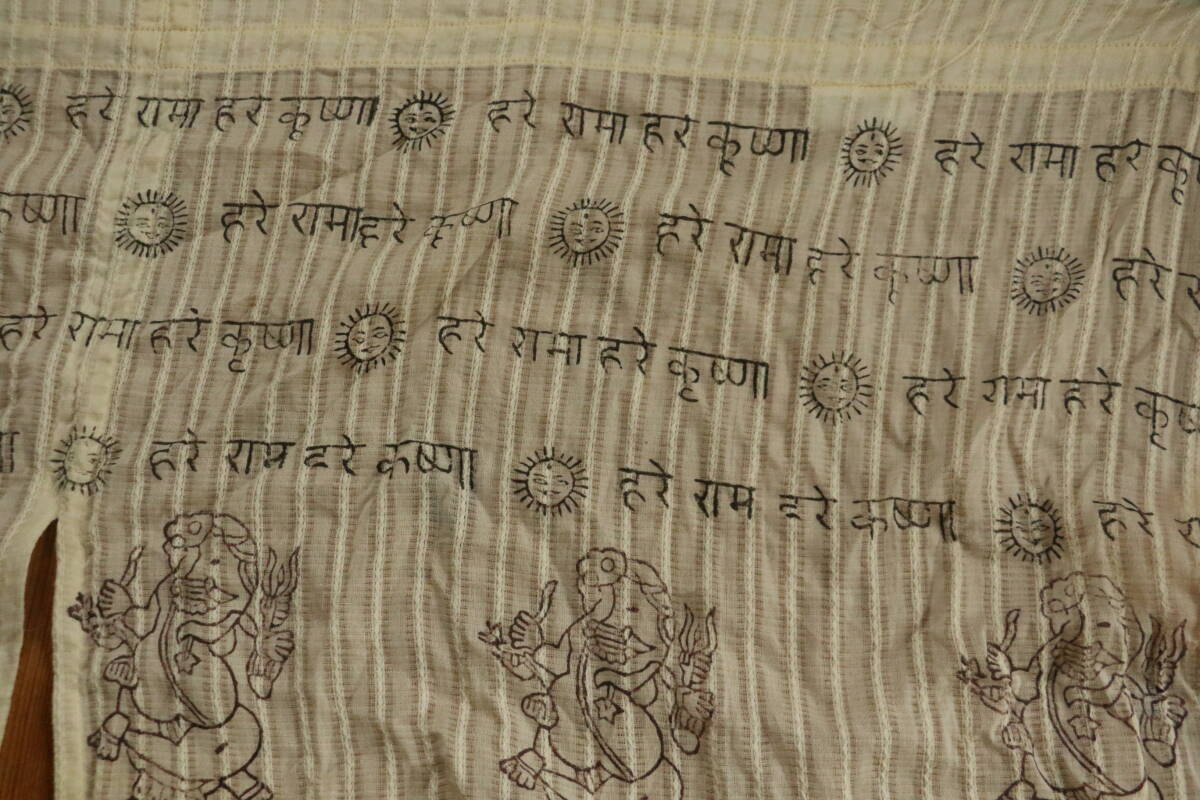 हरे रामा हरे कृष्णा हरे रामा हरे कृष्णा हरे रामा हरे
कृष्णा हरे रामा हरे कृष्णा हरे रामा हरे कृष्णा हरे
हरे रामा हरे कृष्णा हरे रामा हरे कृष्णा हरे रामा हरे कृष्
हरे राम हरे कष्णा हरे राम हरे कष्णा हरे